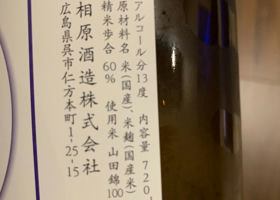 アルコール分13度 内容量720
原材料名 米(国産)、米麹(国産米)
精米歩合 60% 使用米 山田錦100
相原酒造株式会社
広島県呉市仁方本町1-25-15